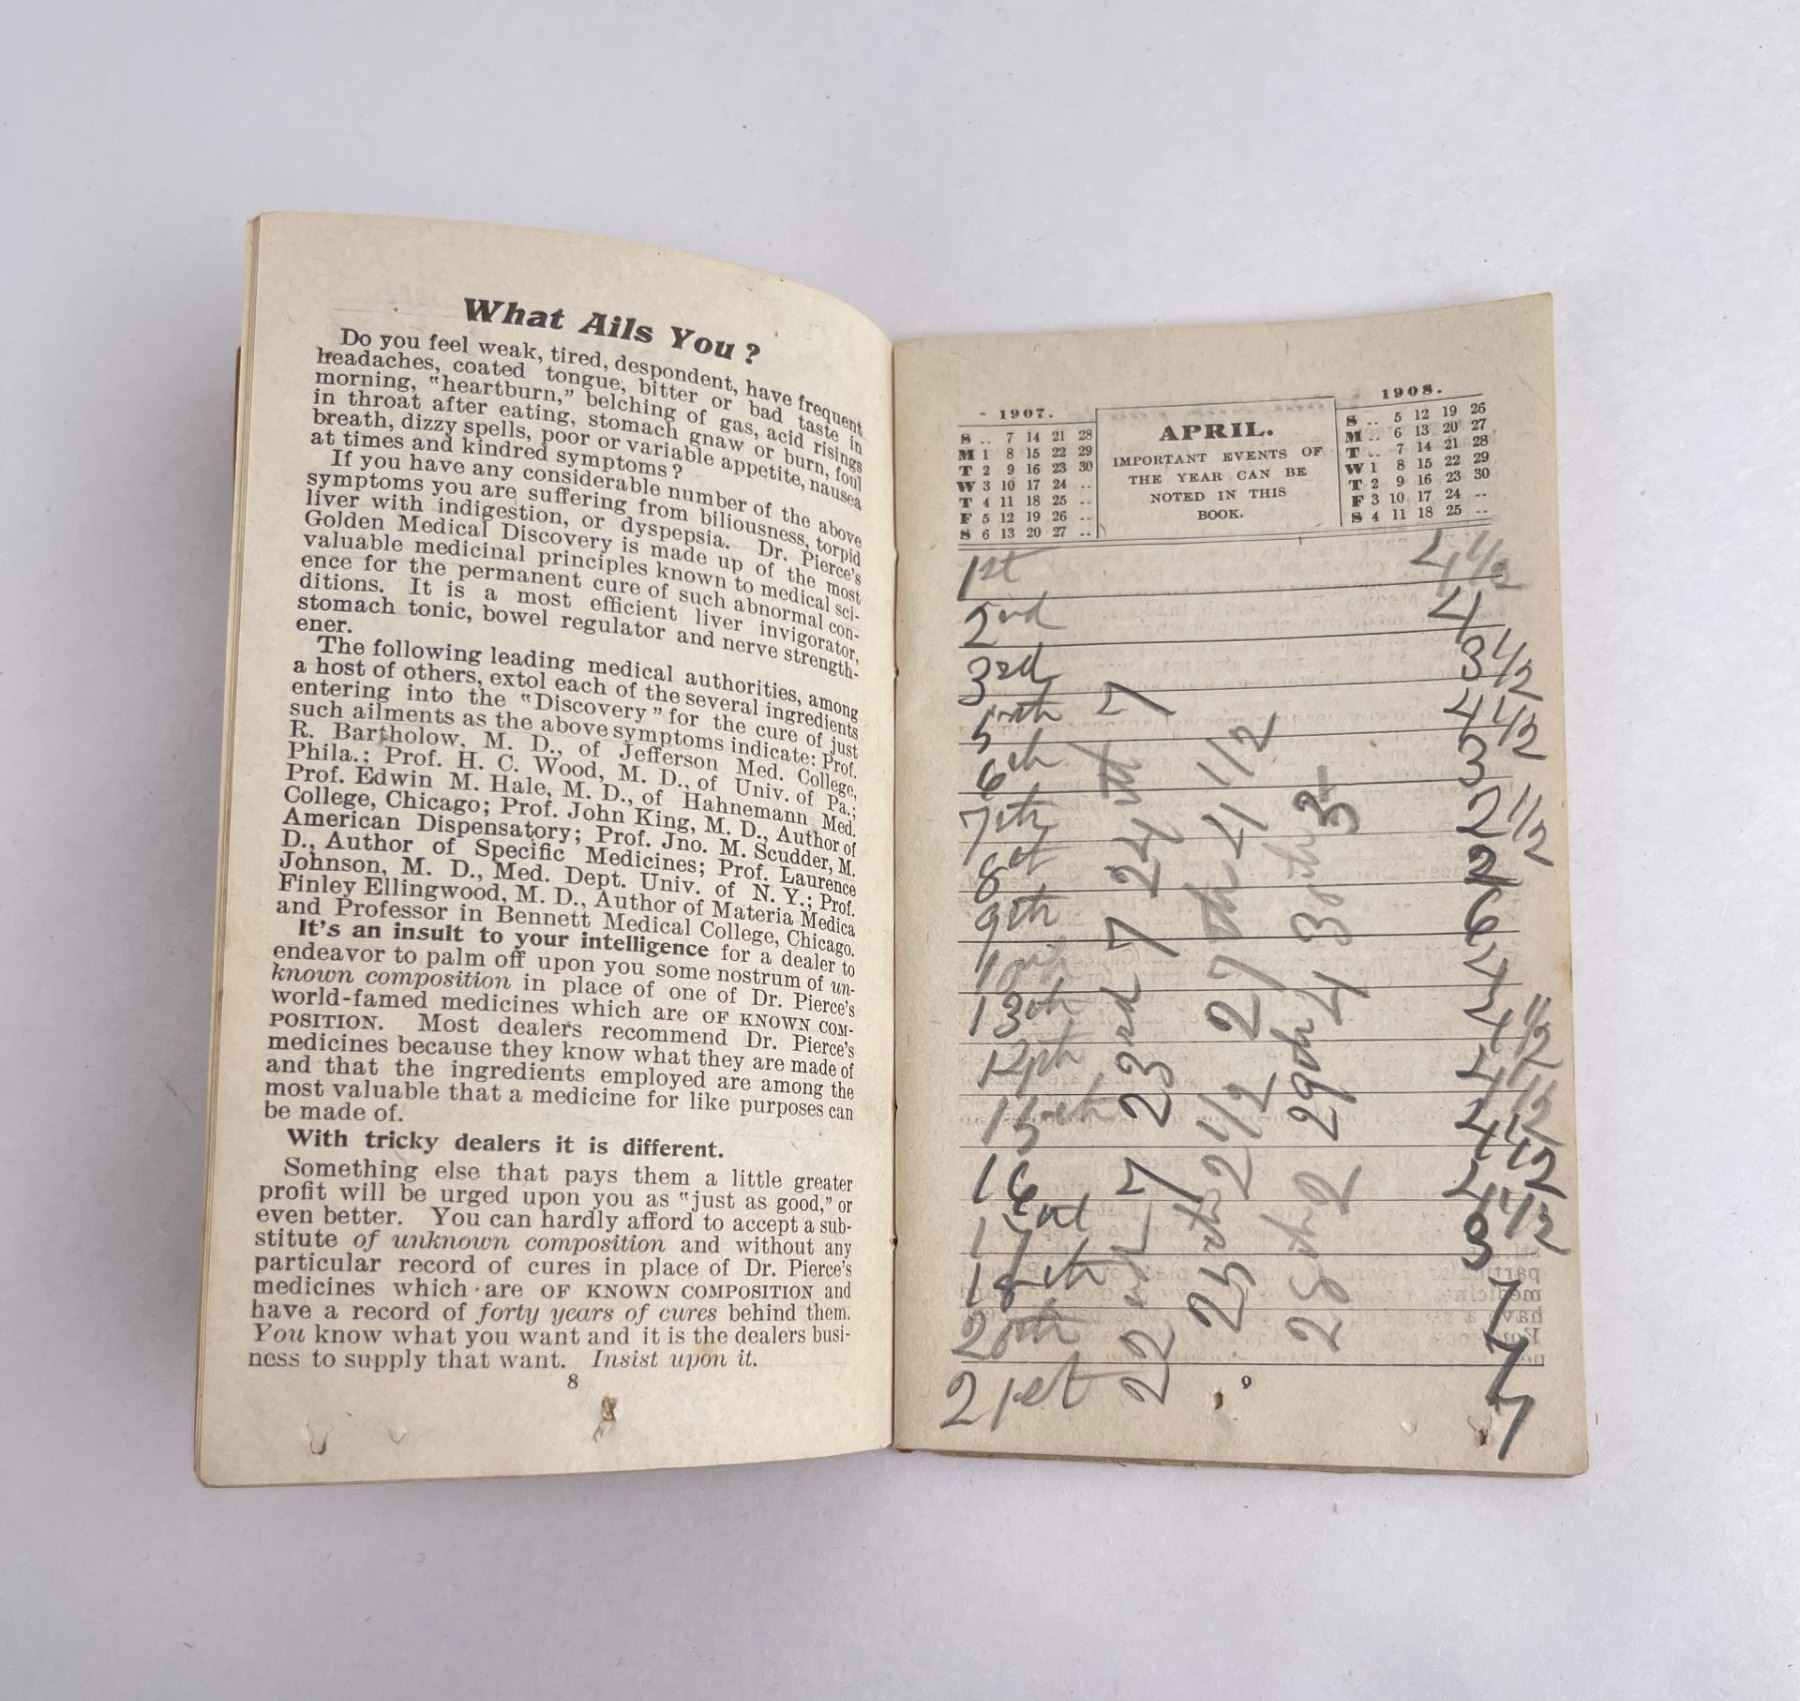 What Ails You?
Do you feel weak, tired, despondent, have frequent
headaches, coated tongue, bitter or bad taste in
morning, "heartburn," belching of gas, acid risings
in throat after eating, stomach gnaw or burn, foul
breath, dizzy spells, poor or variable appetite, nausea
at times and kindred symptoms?
If you have any considerable number of the above
symptoms you are suffering from biliousness, torpid
liver with indigestion, or dyspepsia. Dr. Pierce's
Golden Medical Discovery is made up of the most
valuable medicinal principles known to medical sci-
ence for the permanent cure of such abnormal con-
ditions. It is a most efficient liver invigorator,
stomach tonic, bowel regulator and nerve strength-
ener.
The following leading medical authorities, among
a host of others, extol each of the several ingredients
entering into the "Discovery" for the cure of just
such ailments as the above symptoms indicate: Prof.
R. Bartholow, M. D., of Jefferson Med. College,
Phila.; Prof. H. C. Wood, M. D., of Univ. of Pa.;
Prof. Edwin M. Hale, M. D., of Hahnemann Med.
College, Chicago; Prof. John King, M. D., Author of
American Dispensatory; Prof. Jno. M. Scudder, M.
D., Author of Specific Medicines; Prof. Laurence
Johnson, M. D., Med. Dept. Univ. of N. Y.; Prof.
Finley Ellingwood, M. D., Author of Materia Medica
and Professor in Bennett Medical College, Chicago.
It's an insult to your intelligence for a dealer to
endeavor to palm off upon you some nostrum of un-
known composition in place of one of Dr. Pierce's
world-famed medicines which are OF KNOWN COM-
POSITION. Most dealers recommend Dr. Pierce's
medicines because they know what they are made of
and that the ingredients employed are among the
most valuable that a medicine for like purposes can
be made of.
With tricky dealers it is different.
Something else that pays them a little greater
profit will be urged upon you as "just as good," or
even better. You can hardly afford to accept a sub-
stitute of unknown composition and without any
particular record of cures in place of Dr. Pierce's
medicines which are OF KNOWN COMPOSITION and
have a record of forty years of cures behind them.
You know what you want and it is the dealers busi-
ness to supply that want. Insist upon it.
8
1907.
S .. 7 14 21 28
M 1 8 15 22 29
T 2 9 16 23 30
W 3 10 17 24 ..
T 4 11 18 25 ..
F 5 12 19 26 ..
S 6 13 20 27 ..
APRIL.
IMPORTANT EVENTS OF
THE YEAR CAN BE
NOTED IN THIS
BOOK.
1908.
S .. 5 12 19 26
M .. 6 13 20 27
T .. 7 14 21 28
W 1 8 15 22 29
T 2 9 16 23 30
F 3 10 17 24 ..
S 4 11 18 25 ..
1st 4 1/2
2nd 4
3rd 3 1/2
5th 4 1/2
6th 3
7th 2 1/2
8th 2
9th 6
10th 4
13th 4 1/2
14th 4 1/2
15th 4 1/2
16th 4 1/2
17th 3
18th 7
20th 7
21st 7
22nd 7 23rd 7 24th 7
25th 2 1/2 27th 4 1/2
28th 2 29th 4 30th
9